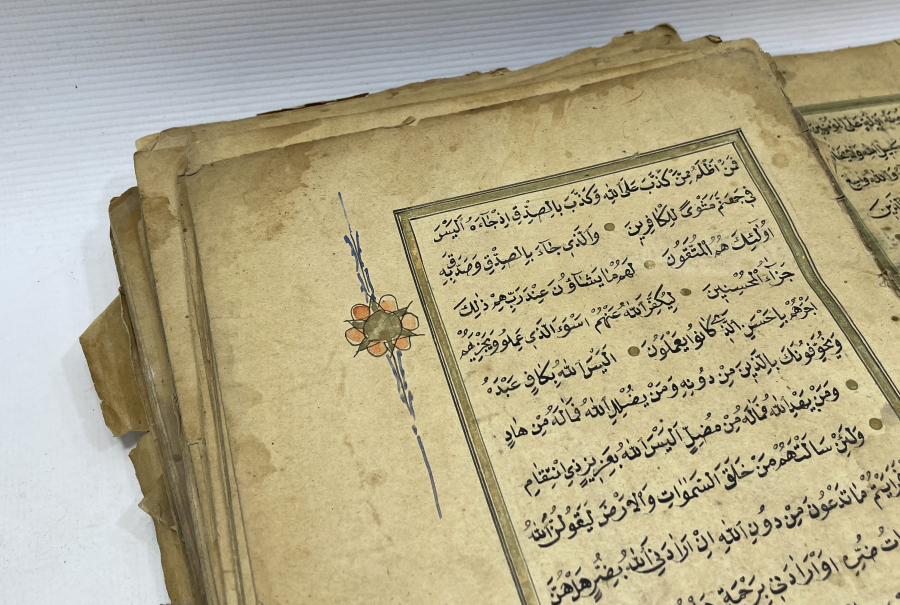 فَمَنْ اَظْلَمُ مِمَّنْ كَذَبَ عَلَى اللهِ وَكَذَّبَ بِالصِّدْقِ اِذْ جَآءَهُ اَلَيْسَ
فِي جَهَنَّمَ مَثْوًى لِلْكَافِرِينَ وَالَّذِي جَآءَ بِالصِّدْقِ وَصَدَّقَ بِهِ
اُولٰئِكَ هُمُ الْمُتَّقُونَ لَهُمْ مَا يَشَآؤُنَ عِنْدَ رَبِّهِمْ ذٰلِكَ
جَزَآءُ الْمُحْسِنِينَ لِيُكَفِّرَ اللهُ عَنْهُمْ اَسْوَءَ الَّذِي عَمِلُوا وَيَجْزِيَهُمْ
اَجْرَهُمْ بِاَحْسَنِ الَّذِي كَانُوا يَعْمَلُونَ اَلَيْسَ اللهُ بِكَافٍ عَبْدَهُ
وَيُخَوِّفُونَكَ بِالَّذِينَ مِنْ دُونِهِ وَمَنْ يُضْلِلِ اللهُ فَمَا لَهُ مِنْ هَادٍ
وَمَنْ يَهْدِ اللهُ فَمَا لَهُ مِنْ مُضِلٍّ اَلَيْسَ اللهُ بِعَزِيزٍ ذِي انْتِقَامٍ
وَلَئِنْ سَاَلْتَهُمْ مَنْ خَلَقَ السَّمٰوَاتِ وَالْاَرْضَ لَيَقُولُنَّ اللهُ
اَفَرَاَيْتُمْ مَا تَدْعُونَ مِنْ دُونِ اللهِ اِنْ اَرَادَنِيَ اللهُ بِضُرٍّ هَلْ هُنَّ
ضُرِّهِ اَوْ اَرَادَنِي بِرَحْمَةٍ